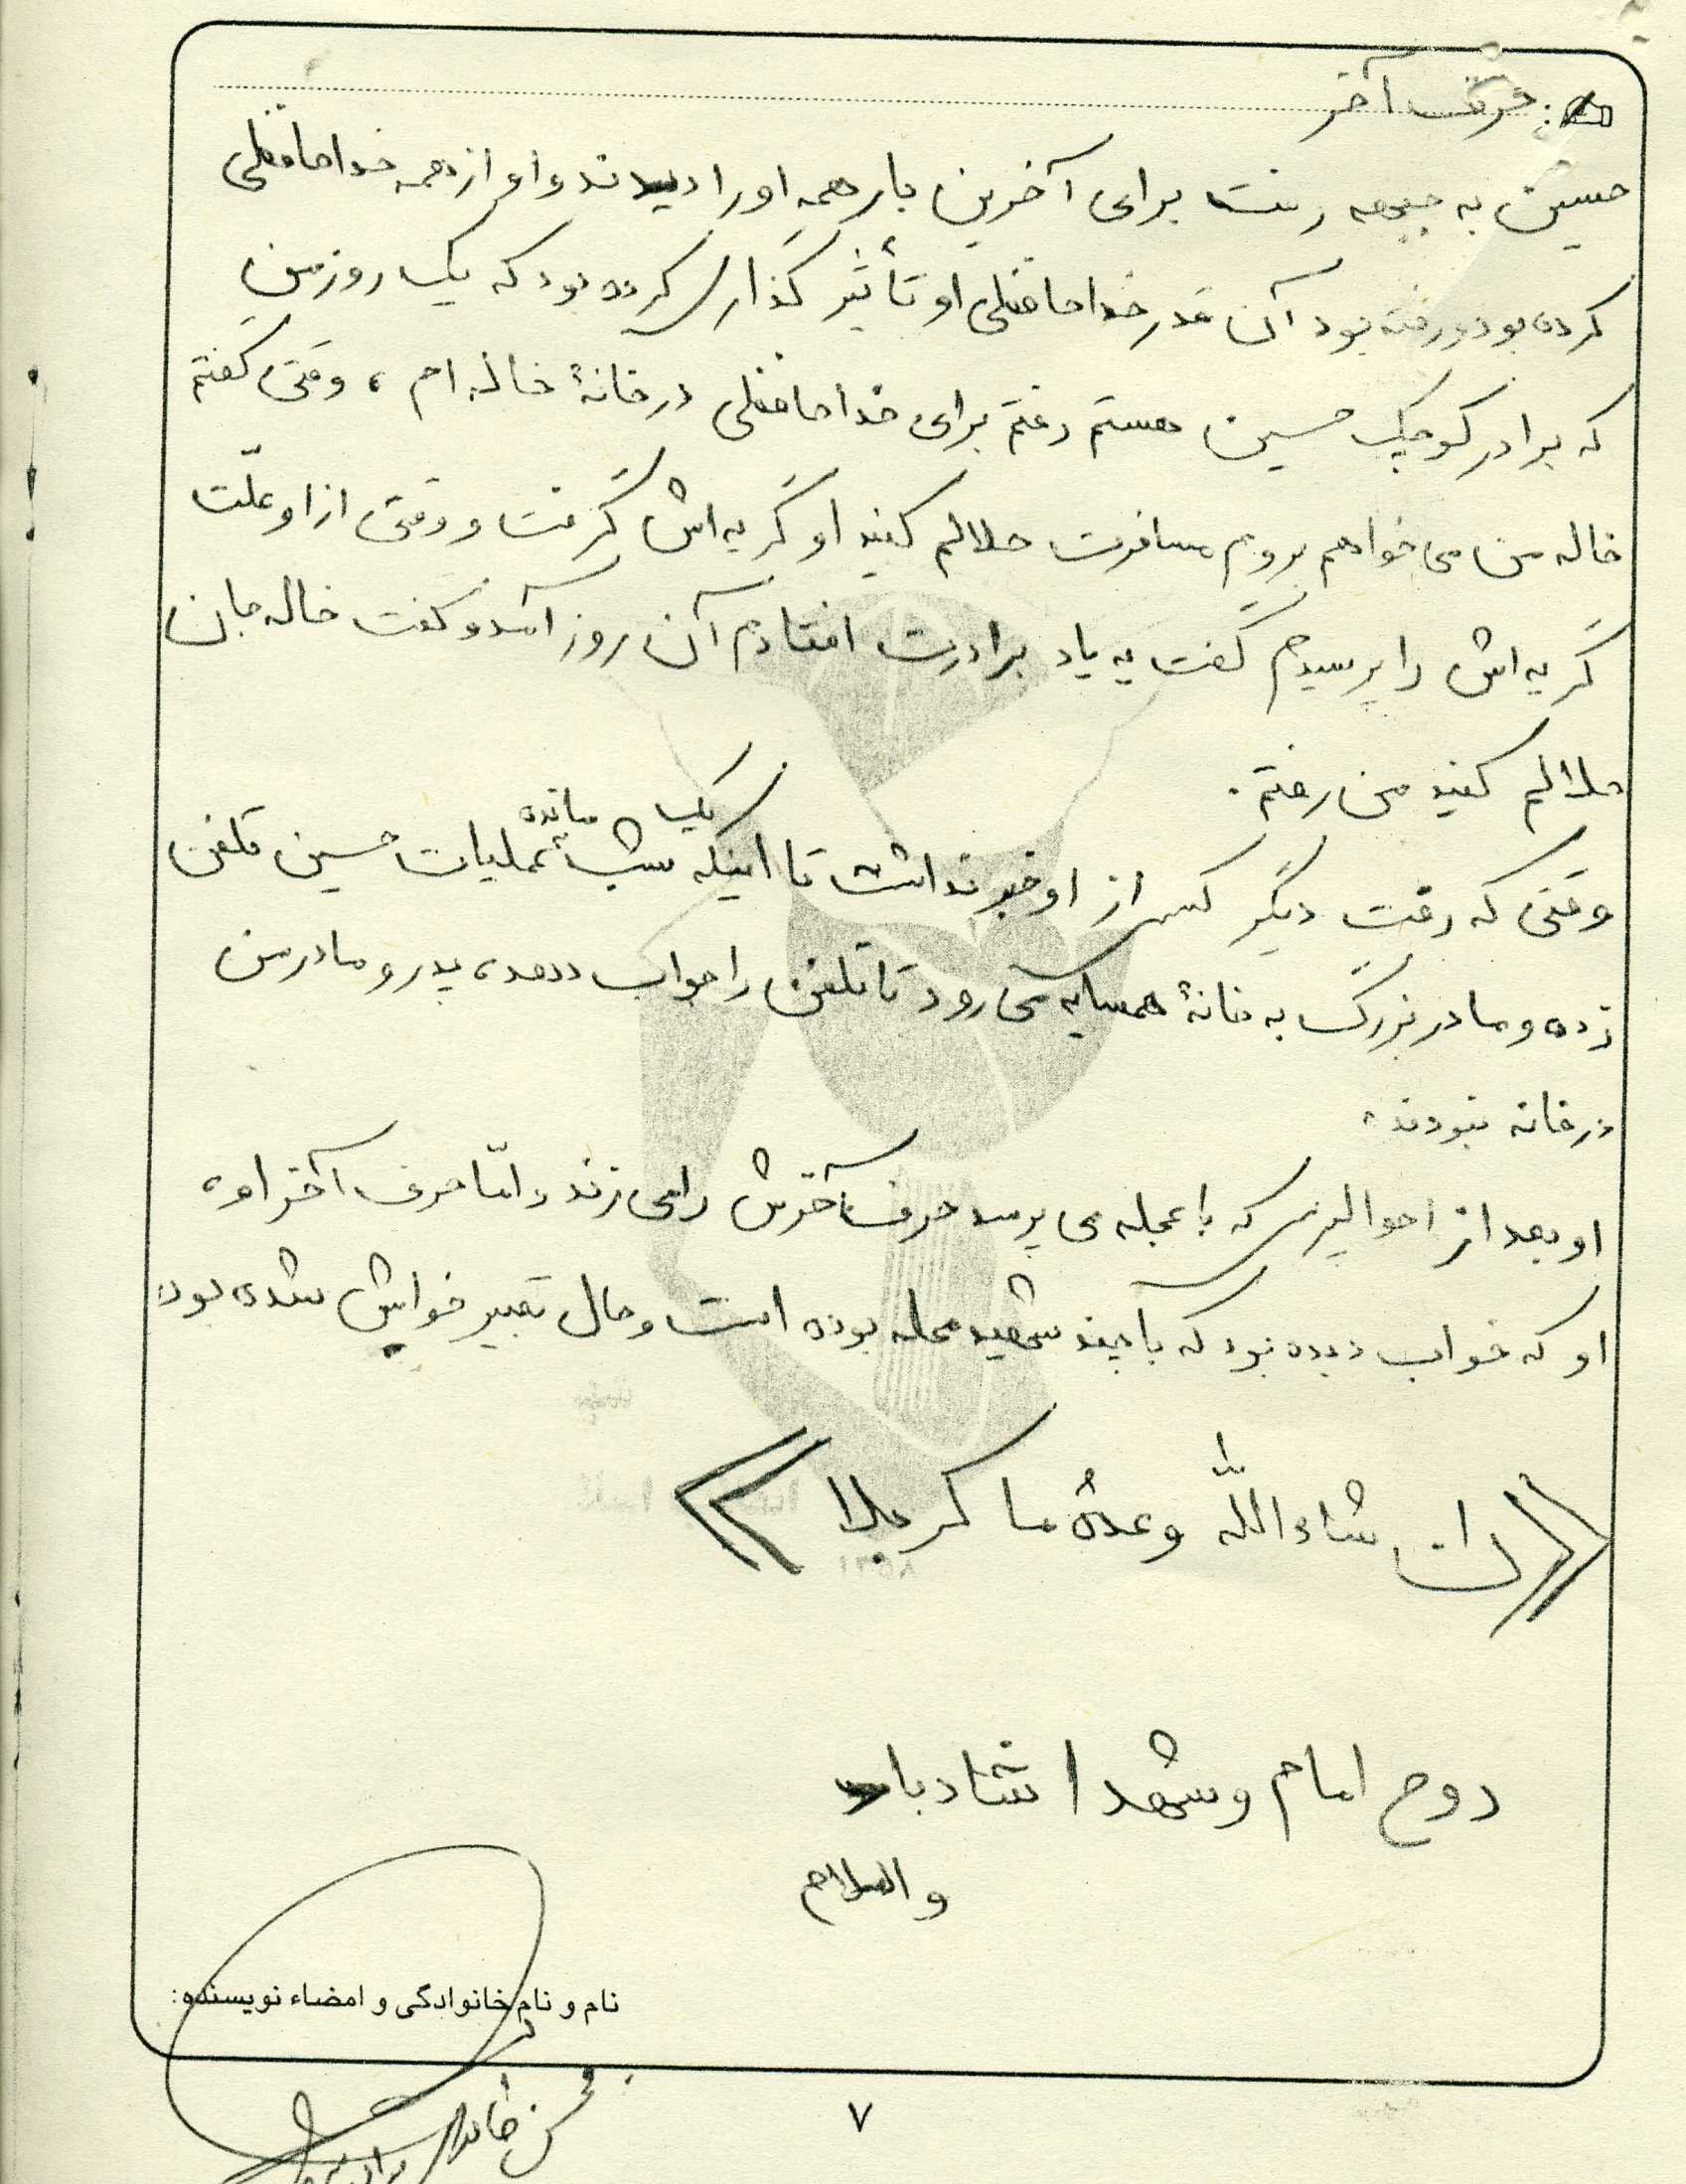 حرف آخر
حسین به جبهه رفت برای آخرین بار همه او را دیدند و او از همه خداحافظی
کرده بود و رفته بود آن قدر خداحافظی او تأثیر گذار کرده بود که یک روز من
که برادر کوچک حسین هستم رفتم برای خداحافظی در خانهٔ خاله ام ، وقتی گفتم
خاله من می خواهم بروم مسافرت حلالم کنید او گریه اش گرفت و وقتی از او علّت
گریه اش را پرسیدم گفت به یاد برادرت افتادم آن روز آمد و گفت خاله جان
حلالم کنید من رفتم .
وقتی که رفت دیگر کسی از او خبر نداشت تا اینکه یک شب مانده عملیات حسین تلفن
زده و مادر بزرگ به خانهٔ همسایه می رود تا تلفن را جواب دهد، پدر و مادر من
در خانه نبودند
او بعد از احوالپرسی که با عجله می پرسد حرف آخرش را می زند و امّا حرف آخر او
او که خواب دیده بود که با چند شهید محله بوده است و حال تعبیر خوابش شده بود
« ان شاء اللّه وعدهٔ ما کربلا »
روح امام و شهدا شاد باد
والسلام
نام و نام خانوادگی و امضاء نویسنده:
محسن
۷